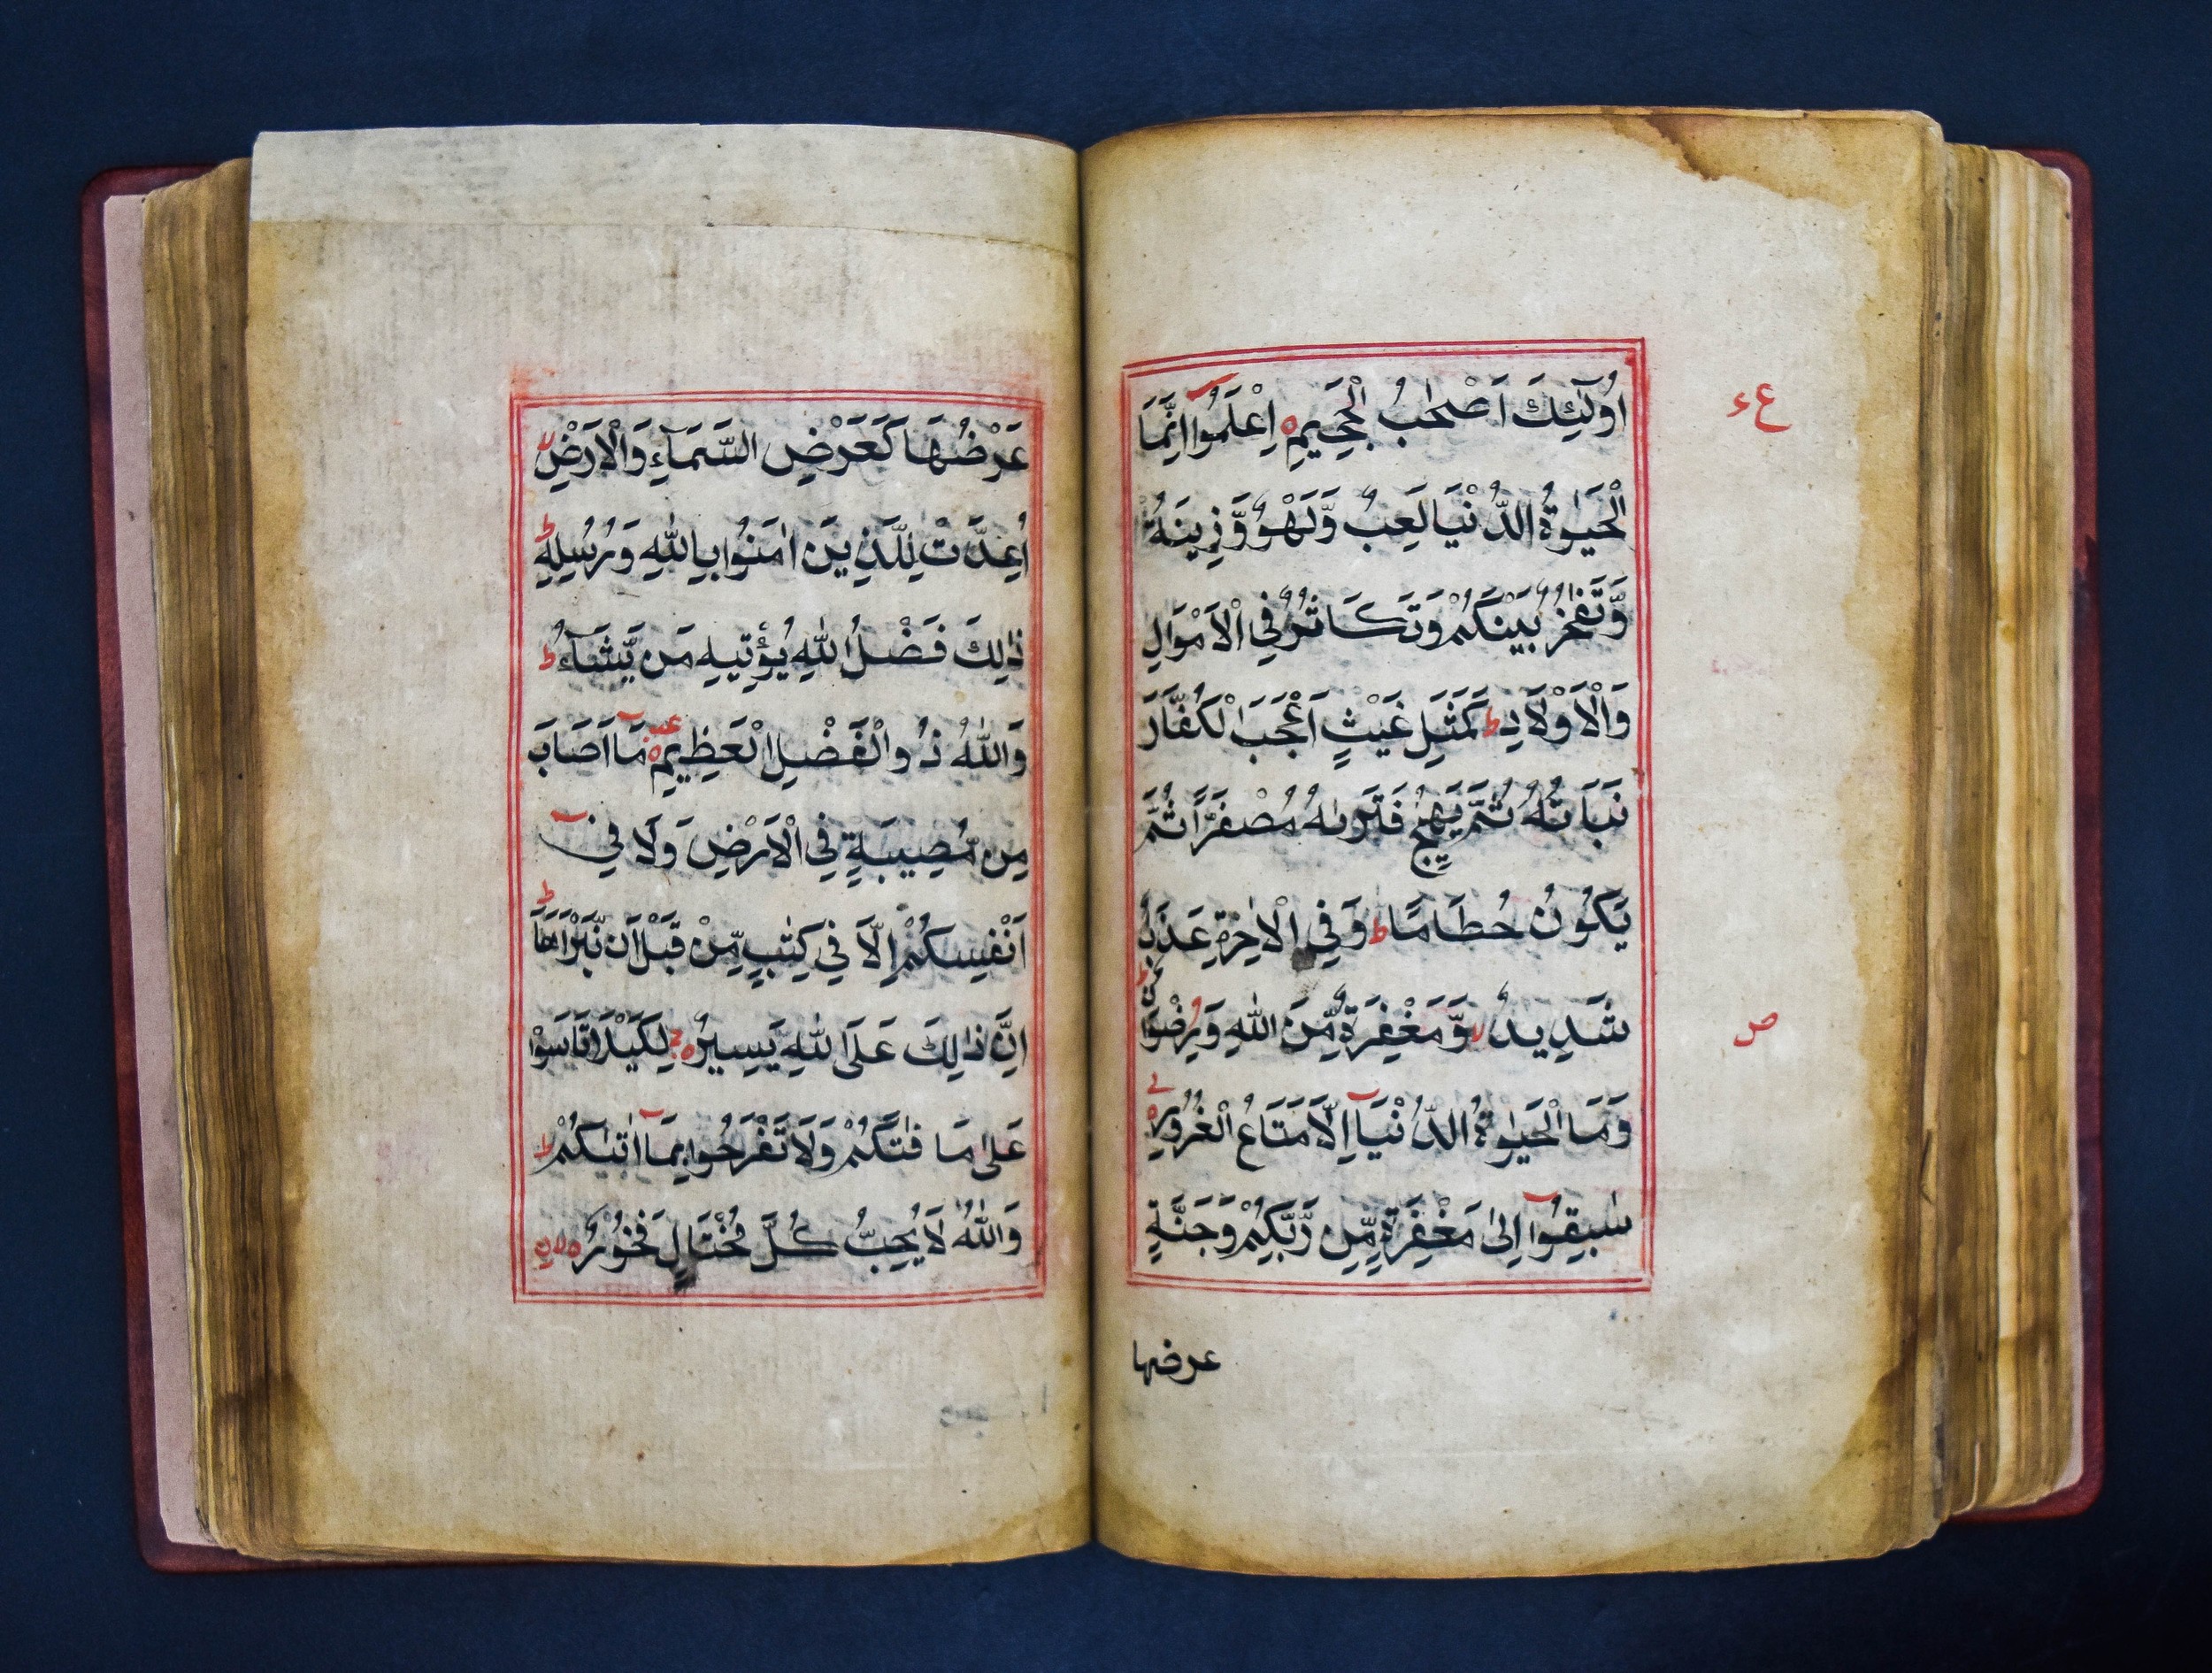 اُولٰٓئِكَ اَصْحٰبُ الْجَحِيْمِ ○ اِعْلَمُوْٓا اَنَّمَا
ع ء
الْحَيٰوةُ الدُّنْيَا لَعِبٌ وَّلَهْوٌ وَّزِيْنَةٌ
وَّتَفٰخُرٌۢ بَيْنَكُمْ وَتَكَاثُرٌ فِي الْاَمْوَالِ
وَالْاَوْلَادِ ط كَمَثَلِ غَيْثٍ اَعْجَبَ الْكُفَّارَ
نَبَاتُهٗ ثُمَّ يَهِيْجُ فَتَرٰىهُ مُصْفَرًّا ثُمَّ
يَكُوْنُ حُطَامًا ط وَفِي الْاٰخِرَةِ عَذَابٌ
شَدِيْدٌ لا وَّمَغْفِرَةٌ مِّنَ اللّٰهِ وَرِضْوَانٌ ط
ص
وَمَا الْحَيٰوةُ الدُّنْيَآ اِلَّا مَتَاعُ الْغُرُوْرِ ○
سَابِقُوْٓا اِلٰى مَغْفِرَةٍ مِّنْ رَّبِّكُمْ وَجَنَّةٍ
عرضها
عَرْضُهَا كَعَرْضِ السَّمَآءِ وَالْاَرْضِ لا
اُعِدَّتْ لِلَّذِيْنَ اٰمَنُوْا بِاللّٰهِ وَرُسُلِهٖ ط
ذٰلِكَ فَضْلُ اللّٰهِ يُؤْتِيْهِ مَنْ يَّشَآءُ ط
وَاللّٰهُ ذُو الْفَضْلِ الْعَظِيْمِ ○ مَآ اَصَابَ
مِنْ مُّصِيْبَةٍ فِي الْاَرْضِ وَلَا فِيْٓ
اَنْفُسِكُمْ اِلَّا فِيْ كِتٰبٍ مِّنْ قَبْلِ اَنْ نَّبْرَاَهَا ط
اِنَّ ذٰلِكَ عَلَى اللّٰهِ يَسِيْرٌ ○ لِّكَيْلَا تَاْسَوْا
عَلٰى مَا فَاتَكُمْ وَلَا تَفْرَحُوْا بِمَآ اٰتٰىكُمْ ط
وَاللّٰهُ لَا يُحِبُّ كُلَّ مُخْتَالٍ فَخُوْرٍ ○